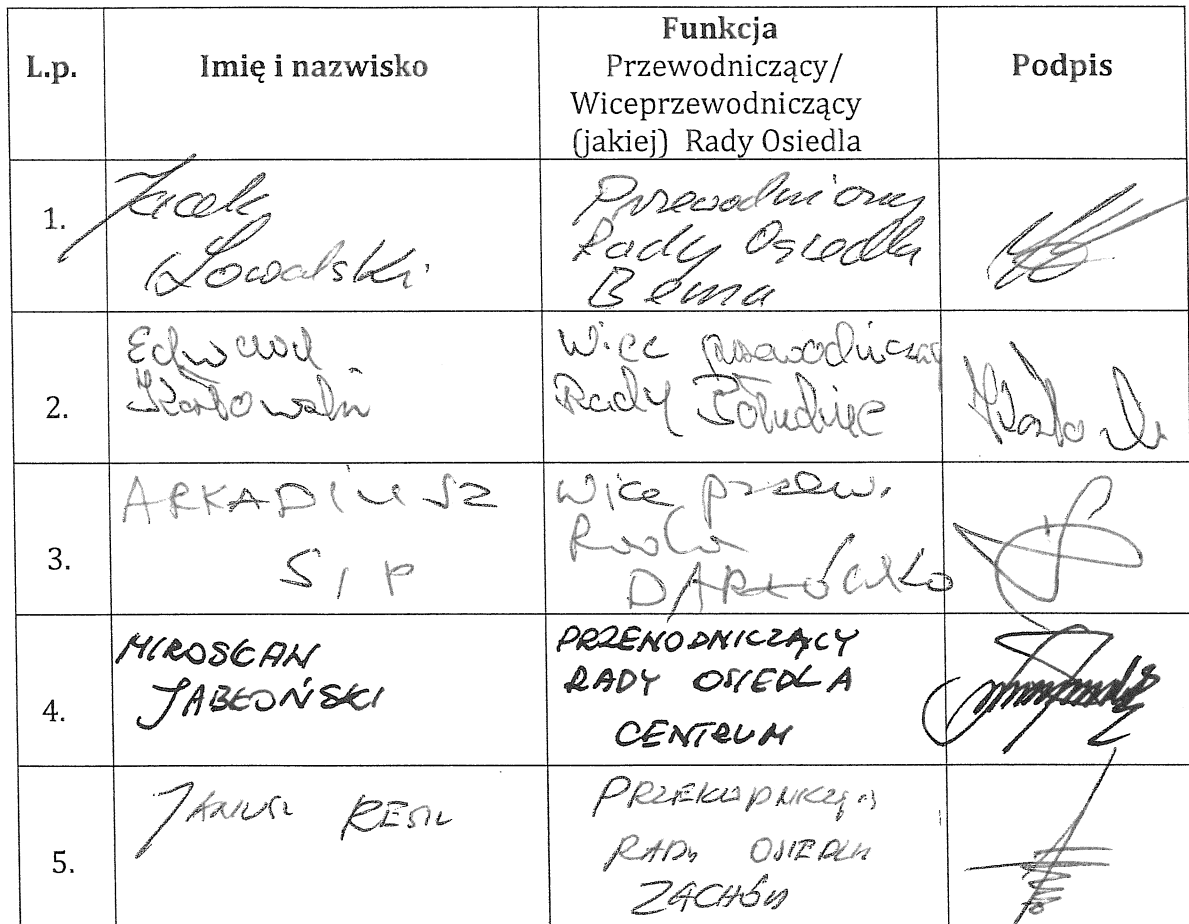 L.p.
Imię i nazwisko
Funkcja
Przewodniczący/
Wiceprzewodniczący
(jakiej) Rady Osiedla
Podpis
1.
Jacek
Przewodniczący
Rady Osiedla
Bema
2.
Edward
Wice przewodniczący
Rady Południe
3.
ARKADIUSZ
SIP
Wice przew.
Rada
DARŁÓWKO
4.
MIROSŁAW
JABŁOŃSKI
PRZEWODNICZĄCY
RADY OSIEDLA
CENTRUM
5.
JANUSZ
PRZEWODNICZĄCY
RADY OSIEDLA
ZACHÓD